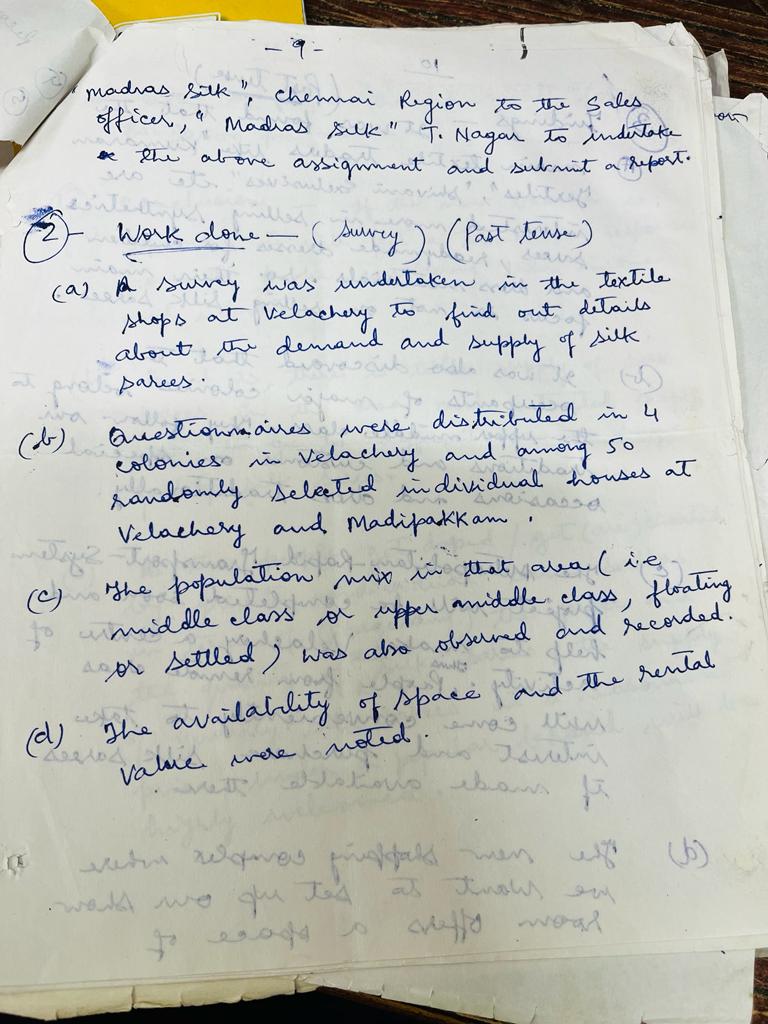 - 9 -
"Madras Silk", Chennai Region to the Sales
officer, "Madras Silk" T. Nagar to undertake
the above assignment and submit a report.
2 - Work done - (Survey) (Past tense)
(a) A survey was undertaken in the textile
shops at Velachery to find out details
about the demand and supply of silk
sarees.
(b) Questionnaires were distributed in 4
colonies in Velachery and among 50
randomly selected individual houses at
Velachery and Madipakkam.
(c) The population mix in that area (i.e
middle class or upper middle class, floating
or settled) was also observed and recorded.
(d) The availability of space and the rental
value were noted.